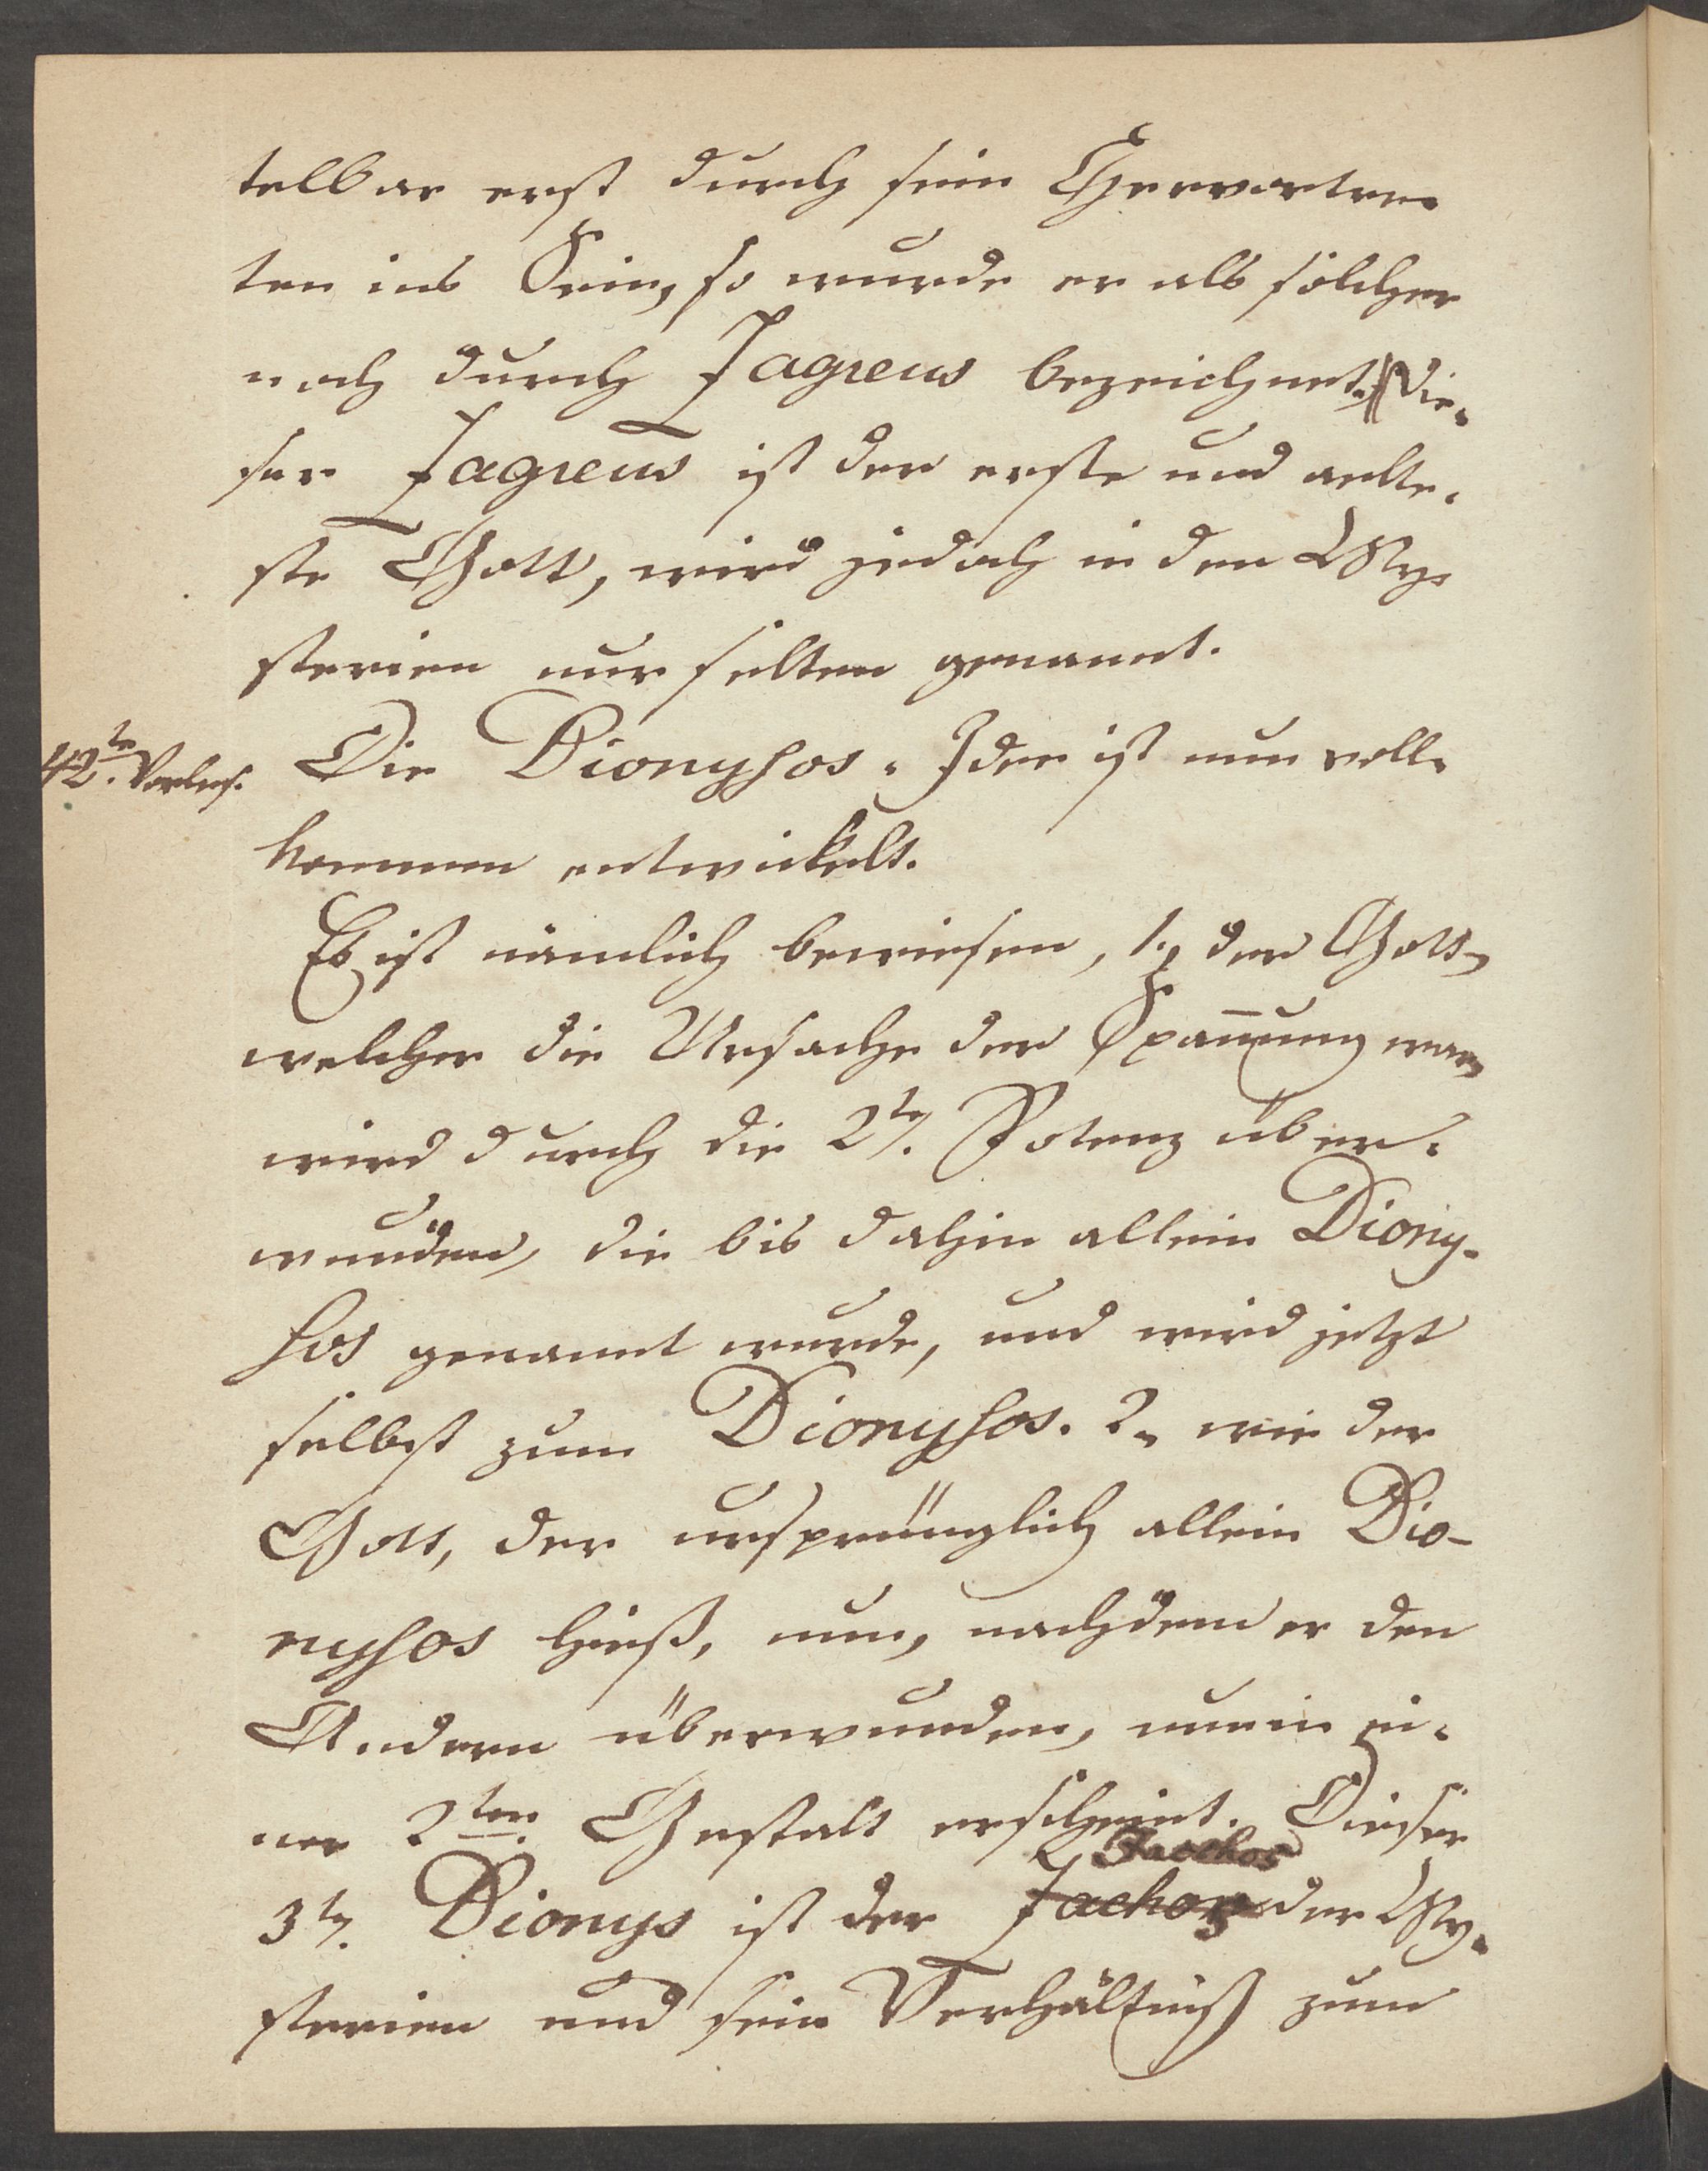 telbar erst durch sein Hervortre-
ten ins Sein, so wurde er als solcher
noch durch Zagreus bezeichnet. Die-
ser Zagreus ist der erste und aelte-
ste Gott, wird jedoch in den My-
sterien nur selten genannt.
42te. Vorles. Die Dionysos-Idee ist nun voll-
kommen entwickelt.
Es ist nämlich bewiesen, 1., der Gott,
welcher die Ursache der Spannung war,
wird durch die 2te. Potenz über-
wunden, die bis dahin allein Diony-
sos genannt wurde, und wird jetzt
selbst zum Dionysos. 2, wie der
Gott, der ursprünglich allein Dio-
nysos hieß, nun, nachdem er den
Andern überwunden, nun in ei-
ner 2ten Gestalt erscheint. Dieser
Jacchos
3te. Dionys ist der Jachos der My-
sterien und sein Verhältniß zum